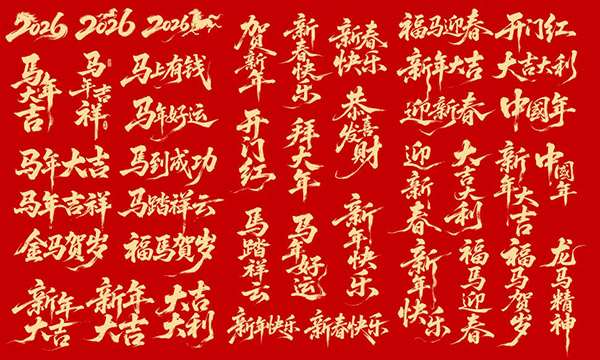 2026
2026
2026
马年大吉
马年吉祥
马上有钱
马年好运
马年大吉
马到成功
马年吉祥
马踏祥云
金马贺岁
福马贺岁
新年大吉
新年大吉
大吉大利
贺新年
新春快乐
新春快乐
开门红
拜大年
恭喜发财
马踏祥云
马年好运
新年快乐
新年快乐
新春快乐
福马迎春
开门红
新年大吉
大吉大利
迎新春
中國年
迎新春
大吉大利
新年大吉
中國年
新年快乐
福马迎春
福马贺岁
龙马精神